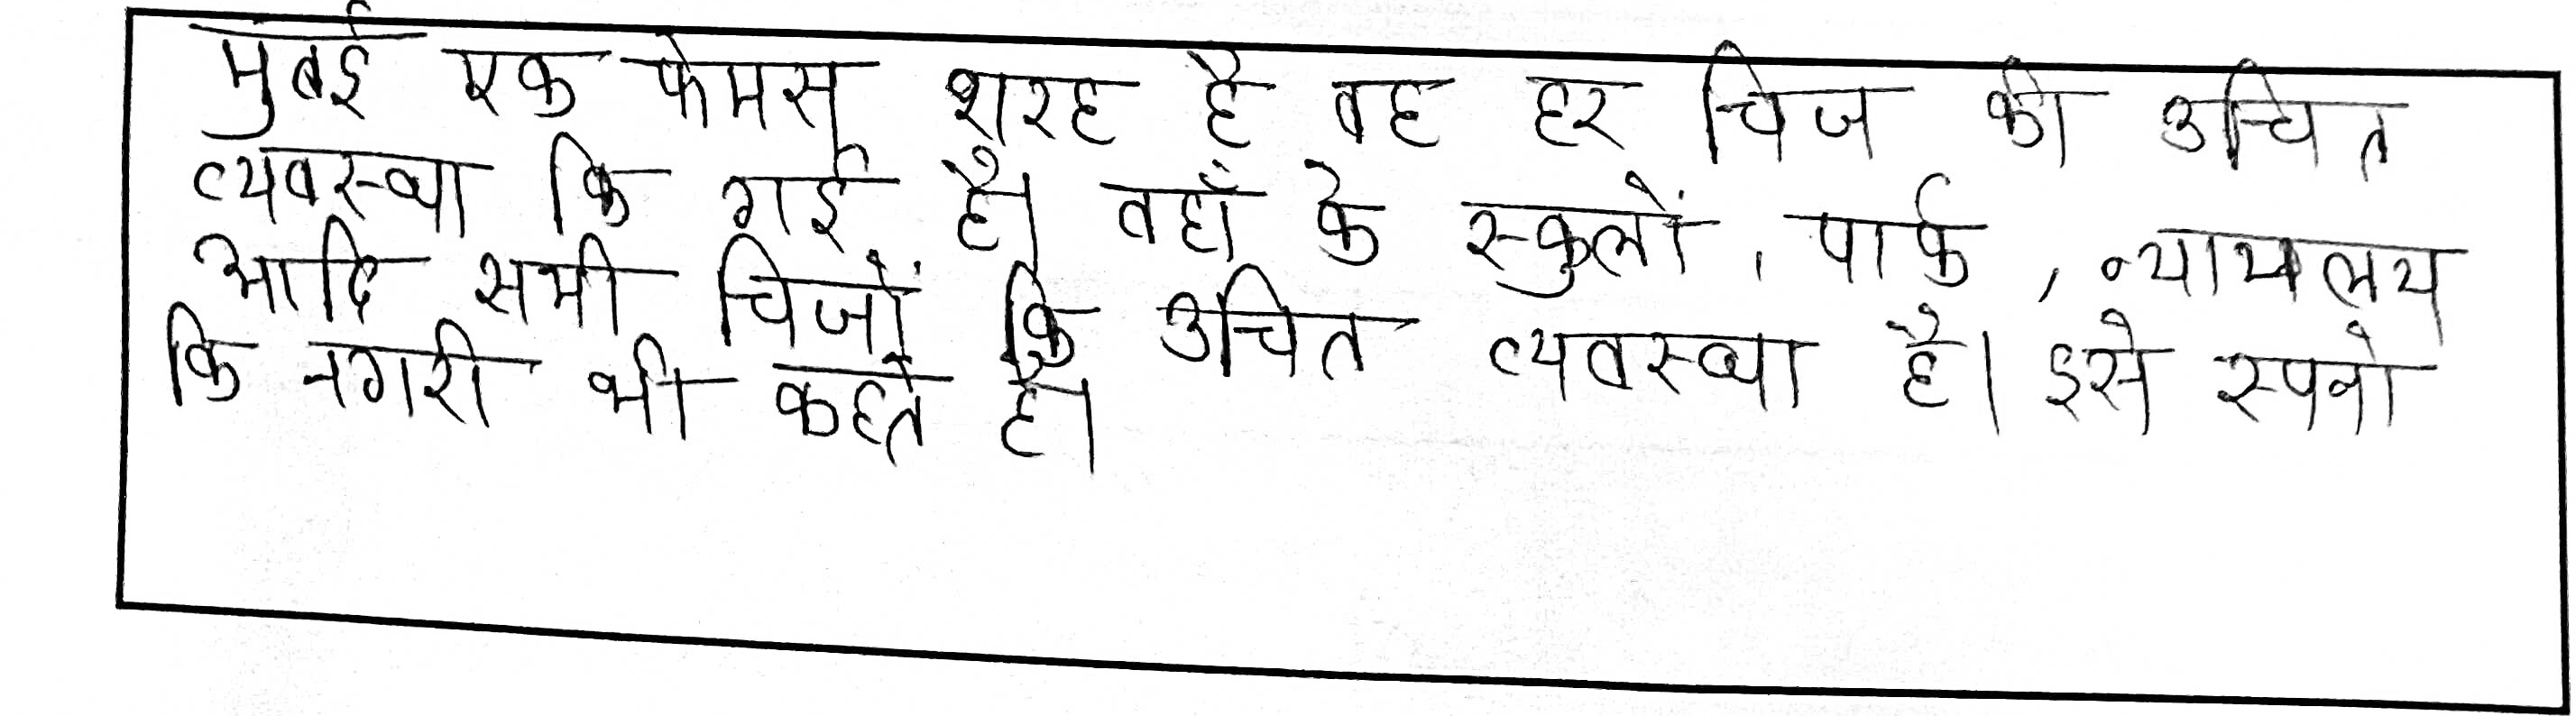 मुबई एक फेमस शरह है वह हर चिज की उचित
व्यवस्था कि गई है। वहाँ के स्कुलों, पार्क, न्यायलय
आदि सभी चिजों कि उचित व्यवस्था है। इसे स्पनो
कि नगरी भी कहते है।